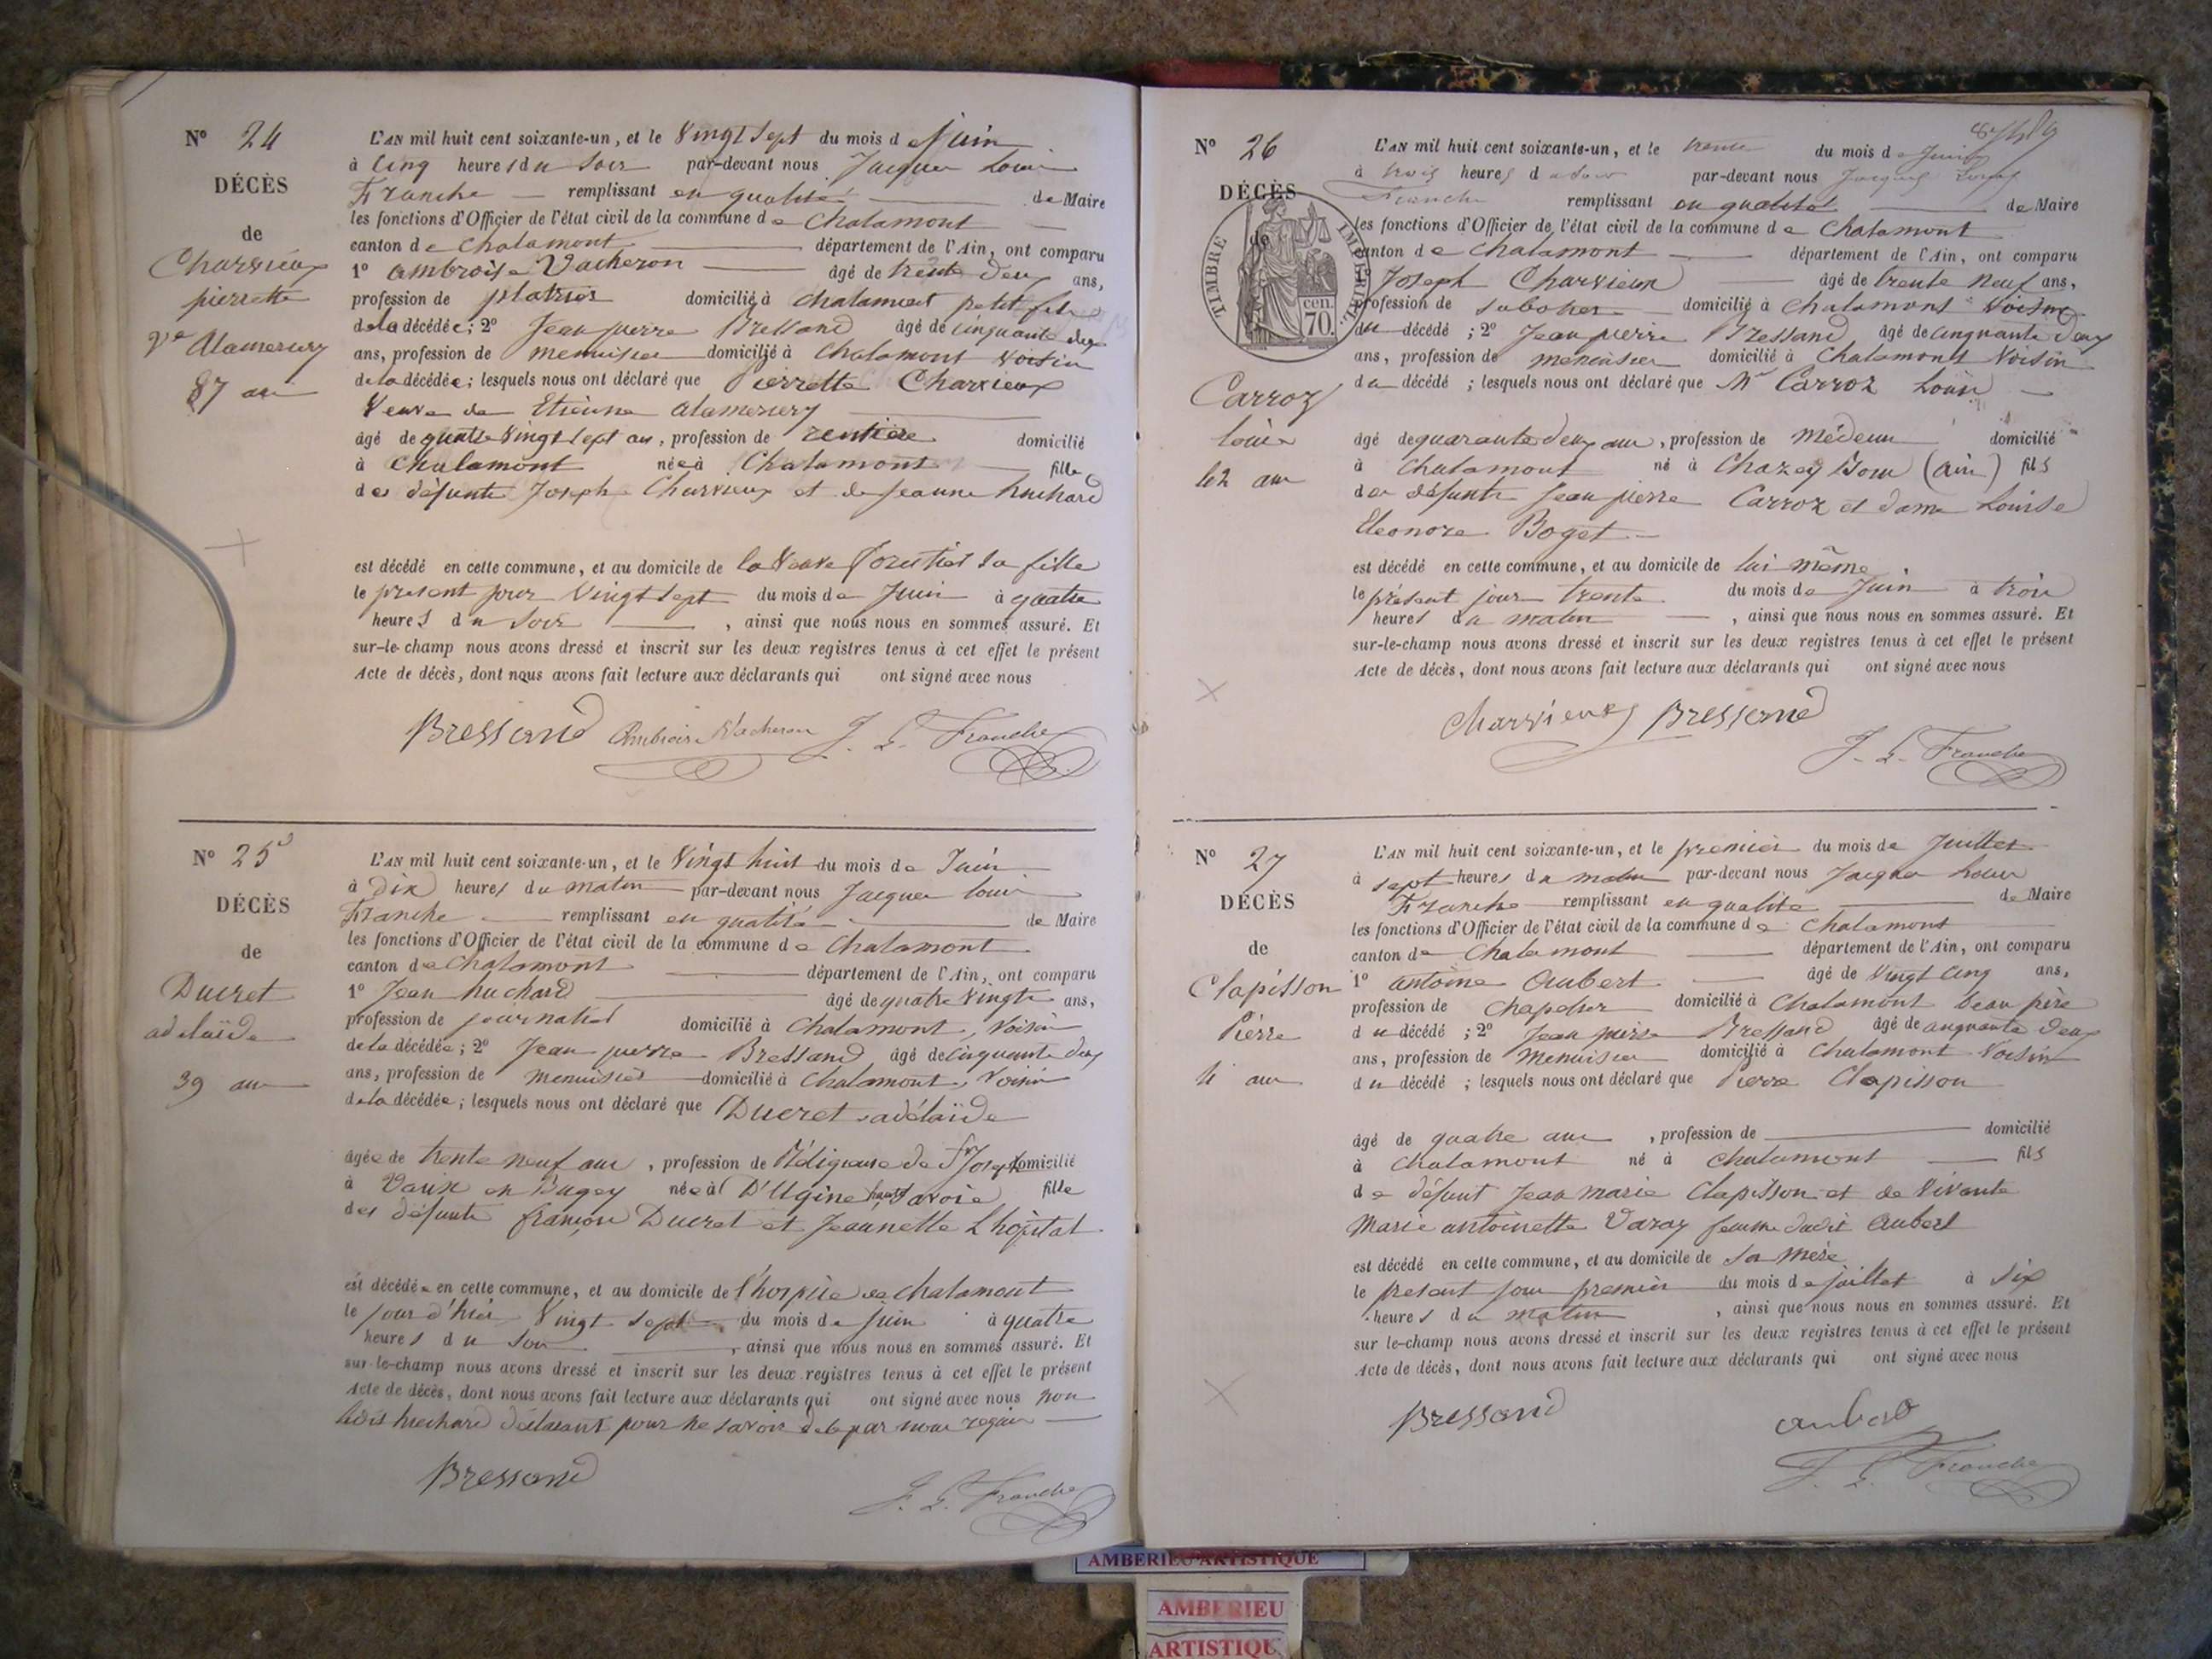 N° 24
DÉCÈS
de
Charvieux
pierrette
Vve Alamercery
87 ans
L'AN mil huit cent soixante-un, et le Vingt Sept du mois de Juin
à Cinq heures du Soir par-devant nous Jacques Louis
Franche remplissant en qualité de Maire
les fonctions d'Officier de l'état civil de la commune de Chalamont
canton de Chalamont département de l'Ain, ont comparu
1° ambroise Vacheron âgé de trente deux ans,
profession de platrier domicilié à Chalamont petit fils
de la décédée ; 2° Jean pierre Bressand âgé de cinquante deux
ans, profession de menuisier domicilié à Chalamont voisin
de la décédée ; lesquels nous ont déclaré que Pierrette Charvieux
Veuve de Etienne alamercery
âgé de quatre Vingt Sept ans, profession de rentière domicilié
à Chalamont née à Chalamont fille
des défunts Joseph Charvieux et de Jeanne huchard
est décédé en cette commune, et au domicile de la Veuve forestier sa fille
le present jour Vingt Sept du mois de Juin à quatre
heures du Soir , ainsi que nous nous en sommes assuré. Et
sur-le-champ nous avons dressé et inscrit sur les deux registres tenus à cet effet le présent
Acte de décès, dont nous avons fait lecture aux déclarants qui ont signé avec nous
Bressand Ambroise Vacheron J. L. Franche
N° 25
DÉCÈS
de
Ducret
adelaïde
39 ans
L'AN mil huit cent soixante-un, et le Vingt huit du mois de Juin
à Dix heures du matin par-devant nous Jacques Louis
Franche remplissant en qualité de Maire
les fonctions d'Officier de l'état civil de la commune de Chalamont
canton de Chalamont département de l'Ain, ont comparu
1° Jean huchard âgé de quatre Vingts ans,
profession de journalier domicilié à Chalamont, voisin
de la décédée ; 2° Jean pierre Bressand âgé de Cinquante deux
ans, profession de menuisier domicilié à Chalamont, voisin
de la décédée ; lesquels nous ont déclaré que Ducret adélaïde
âgée de trente neuf ans , profession de Réligieuse de St Joseph domicilié
à Vaux en Bugey née à D'Ugine haute Savoie fille
des défunts françois Ducret et Jeannette L'hôpital
est décédée en cette commune, et au domicile de l'hospice de Chalamont
le jour d'hier Vingt Sept du mois de juin à quatre
heures du Soir , ainsi que nous nous en sommes assuré. Et
sur-le-champ nous avons dressé et inscrit sur les deux registres tenus à cet effet le présent
Acte de décès, dont nous avons fait lecture aux déclarants qui ont signé avec nous non
ledit huchard déclarant pour ne savoir de ce par nous requis
Bressand J. L. Franche
N° 26
DÉCÈS
de
TIMBRE IMPÉRIAL
cen. 70.
Carroz
Louis
42 ans
L'AN mil huit cent soixante-un, et le trente du mois de Juin
à trois heures du soir par-devant nous Jacques Louis
Franche remplissant en qualité de Maire
les fonctions d'Officier de l'état civil de la commune de Chalamont
canton de Chalamont département de l'Ain, ont comparu
Joseph Charvieux âgé de trente Neuf ans,
profession de sabotier domicilié à Chalamont Voisin
du décédé ; 2° Jean pierre Bressand âgé de Cinquante deux
ans, profession de menuisier domicilié à Chalamont Voisin
du décédé ; lesquels nous ont déclaré que Mr Carroz Louis
âgé de quarante deux ans, profession de Médecin domicilié
à Chalamont né à Chazey (ain) fils
des défunts Jean pierre Carroz et dame Louise
Eleonore Boget
est décédé en cette commune, et au domicile de lui même
le présent jour trente du mois de Juin à trois
heures du matin , ainsi que nous nous en sommes assuré. Et
sur-le-champ nous avons dressé et inscrit sur les deux registres tenus à cet effet le présent
Acte de décès, dont nous avons fait lecture aux déclarants qui ont signé avec nous
Charvieux Bressand
J. L. Franche
N° 27
DÉCÈS
de
Clapisson
Pierre
4 ans
L'AN mil huit cent soixante-un, et le premier du mois de Juillet
à sept heures du matin par-devant nous Jacques Louis
Franche remplissant en qualité de Maire
les fonctions d'Officier de l'état civil de la commune de Chalamont
canton de Chalamont département de l'Ain, ont comparu
1° antoine Aubert âgé de Vingt Cinq ans,
profession de Chapelier domicilié à Chalamont beau père
du décédé ; 2° Jean pierre Bressand âgé de cinquante deux
ans, profession de Menuisier domicilié à Chalamont Voisin
du décédé ; lesquels nous ont déclaré que Pierre Clapisson
âgé de quatre ans , profession de domicilié
à Chalamont né à Chalamont fils
de défunt Jean marie Clapisson et de Vivante
Marie antoinette Varay femme dudit Aubert
est décédé en cette commune, et au domicile de sa mère
le présent jour premier du mois de juillet à Six
heures du matin , ainsi que nous nous en sommes assuré. Et
sur le-champ nous avons dressé et inscrit sur les deux registres tenus à cet effet le présent
Acte de décès, dont nous avons fait lecture aux déclarants qui ont signé avec nous
Bressand aubert
J. L. Franche
AMBERIEU ARTISTIQUE
AMBERIEU
ARTISTIQU